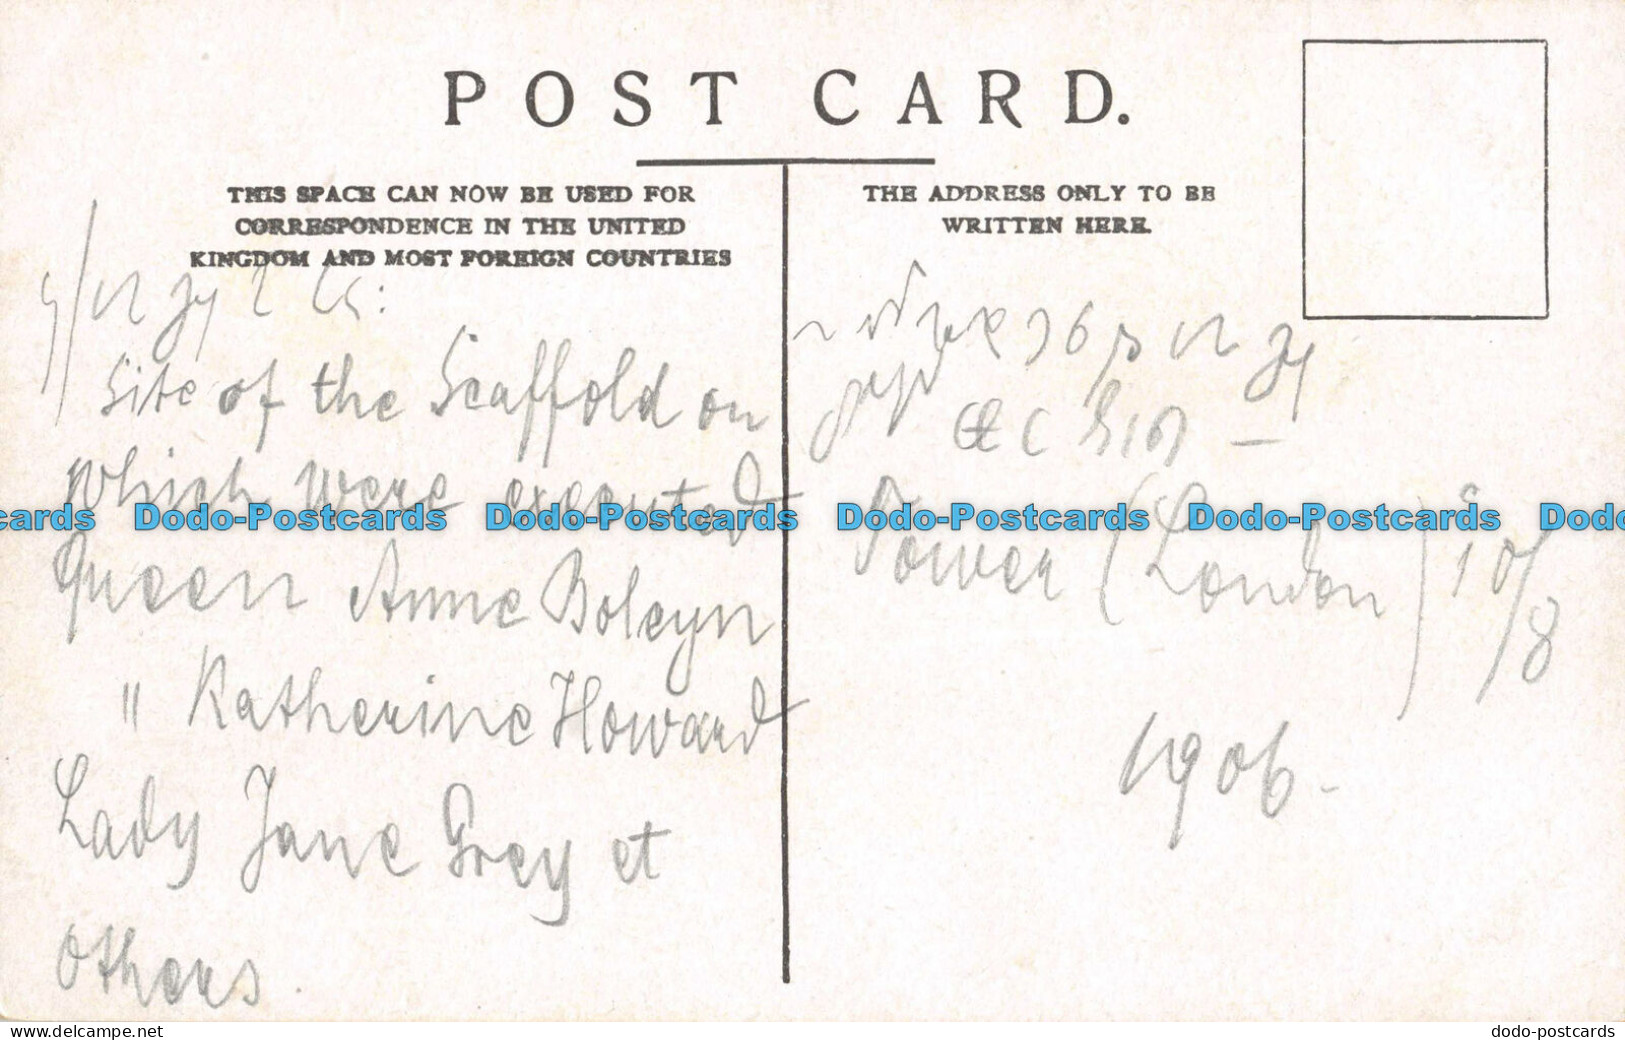 POST CARD.
THIS SPACE CAN NOW BE USED FOR
CORRESPONDENCE IN THE UNITED
KINGDOM AND MOST FOREIGN COUNTRIES
Site of the Scaffold on
which were executed
Queen Anne Boleyn
" Katherine Howard
Lady Jane Grey et
Others.
THE ADDRESS ONLY TO BE
WRITTEN HERE.
Tower (London) 10/8
1906.
cards Dodo-Postcards Dodo-Postcards Dodo-Postcards Dodo-Postcards Dodo
delcampe.net
dodo-postcards